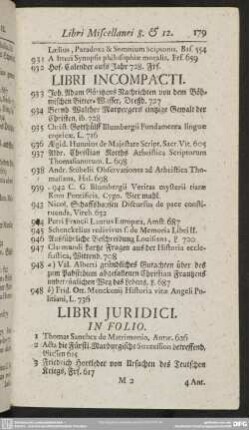 Libri Miscellanei 8. & 12. 179
Lælius, Paradoxa & Somnium Scipionis, Bas. 554
931 A Stteri Synopsis philosophiæ moralis, Frf. 659
932 Hof-Calender aufs Jahr 728. Frf.
LIBRI INCOMPACTI.
933 Joh. Adam Görizens Nachrichten von dem Böh-
mischen Bitter-Wasser, Dresd. 727
934 Bernd Walther Marpergers einzige Gewalt der
Christen, ib. 728
935 Christ. Gotthilff Blumbergii Fundamenta linguæ
copticæ, L. 716
936 Ægid. Hunnius de Majestate Script. Sacr. Vit. 605
937 Abr. Christian Roths Atheistica Scriptorum
Thomasianorum. L. 698
938 Andr. Stübelii Observationes ad Atheistica Tho-
masiana, Hal. 698
939 - 942 C. G. Blumbergii Veritas mysterii nium
Rom Pontificis, Cygn. Vier mahl.
943 Nicol. Schaffshausen Discursus de pace consti-
tuenda, Vinch. 632
944 Parvi Francii Laurus Europæa, Amst. 687
945 Schenckelius redivivus s. de Memoria Libri II.
946 Ausführliche Beschreibung Louisiana, L. 720
947 Clemundi kurtze Fragen aus der Historia eccle-
siastica, Wittenb. 708
948 a) Val. Alberti gründliches Gutachten über des
zum Pabstthum abgefallenen Christian Franzens
unbetrüglichen Weg des Lebens, L. 687
948 b) Frid. Ott. Menckenii Historia vitæ Angeli Po-
litiani, L. 736
LIBRI JURIDICI.
IN FOLIO.
1 Thomas Sanchez de Matrimonio, Antw. 626
2 Acta die Fürstl. Marburgische Succession betreffend,
Giessen 615
3 Friedrich Hortleder von Ursachen des Teutschen
Kriegs, Frf. 617
M 2 4 Ant.